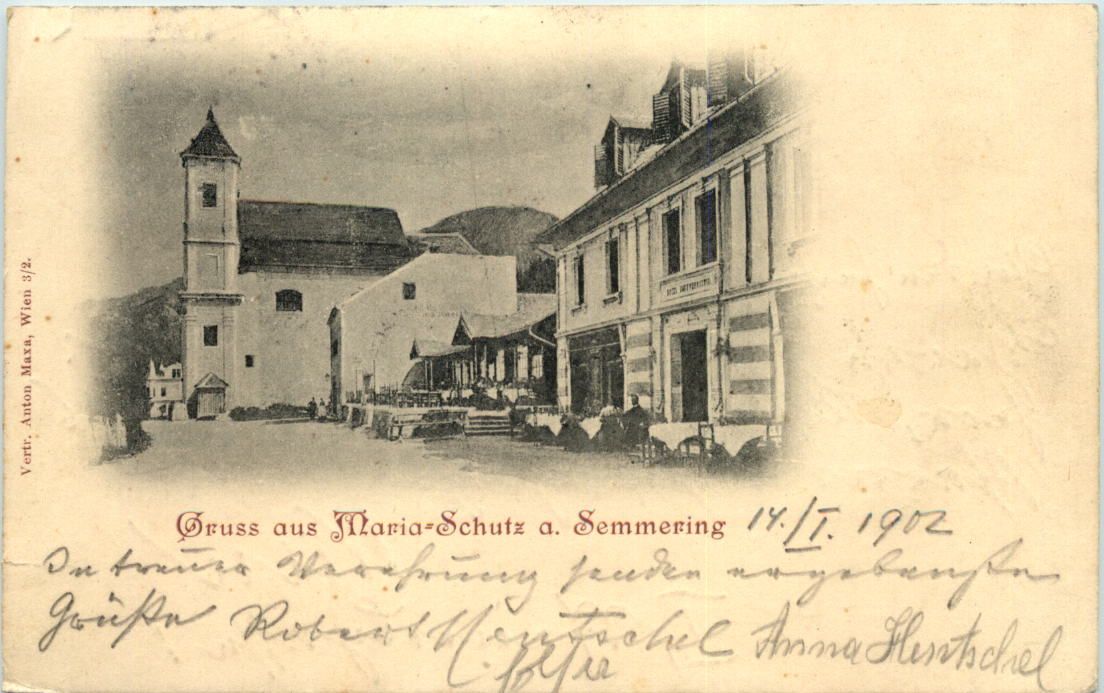 Vertr. Anton Maxa, Wien 3/2.
Gruss aus Maria-Schutz a. Semmering 14./I. 1902
In treuer Verehrung senden ergebenste
Grüße Robert Hentschel Anna Hentschel